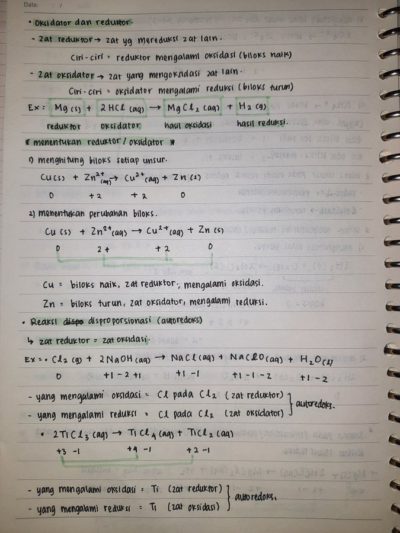 Date:
• Oksidator dan reduktor
- Zat reduktor → zat yg mereduksi zat lain.
Ciri-ciri = reduktor mengalami oksidasi (biloks naik)
- Zat oksidator → zat yang mengoksidasi zat lain.
Ciri-ciri = oksidator mengalami reduksi (biloks turun)
Ex = Mg (s) + 2HCl (aq) → MgCl₂ (aq) + H₂ (g)
reduktor oksidator hasil oksidasi hasil reduksi.
* menentukan reduktor / oksidator *
1) menghitung biloks setiap unsur.
Cu (s) + Zn²⁺(aq) → Cu²⁺(aq) + Zn (s)
0 +2 +2 0
2) menentukan perubahan biloks.
Cu (s) + Zn²⁺(aq) → Cu²⁺(aq) + Zn (s)
0 2+ +2 0
Cu = biloks naik, zat reduktor, mengalami oksidasi.
Zn = biloks turun, zat oksidator, mengalami reduksi.
• Reaksi disproporsionasi (autoredoks)
↳ zat reduktor = zat oksidasi.
Ex = • Cl₂ (g) + 2NaOH (aq) → NaCl (aq) + NaClO (aq) + H₂O (l)
0 +1 -2 +1 +1 -1 +1 -1 -2 +1 -2
- yang mengalami oksidasi = Cl pada Cl₂ (zat reduktor)
- yang mengalami reduksi = Cl pada Cl₂ (zat oksidator)
autoredoks.
• 2TiCl₃ (aq) → TiCl₄ (aq) + TiCl₂ (aq)
+3 -1 +4 -1 +2 -1
- yang mengalami oksidasi = Ti (zat reduktor)
- yang mengalami reduksi = Ti (zat oksidasi)
autoredoks.